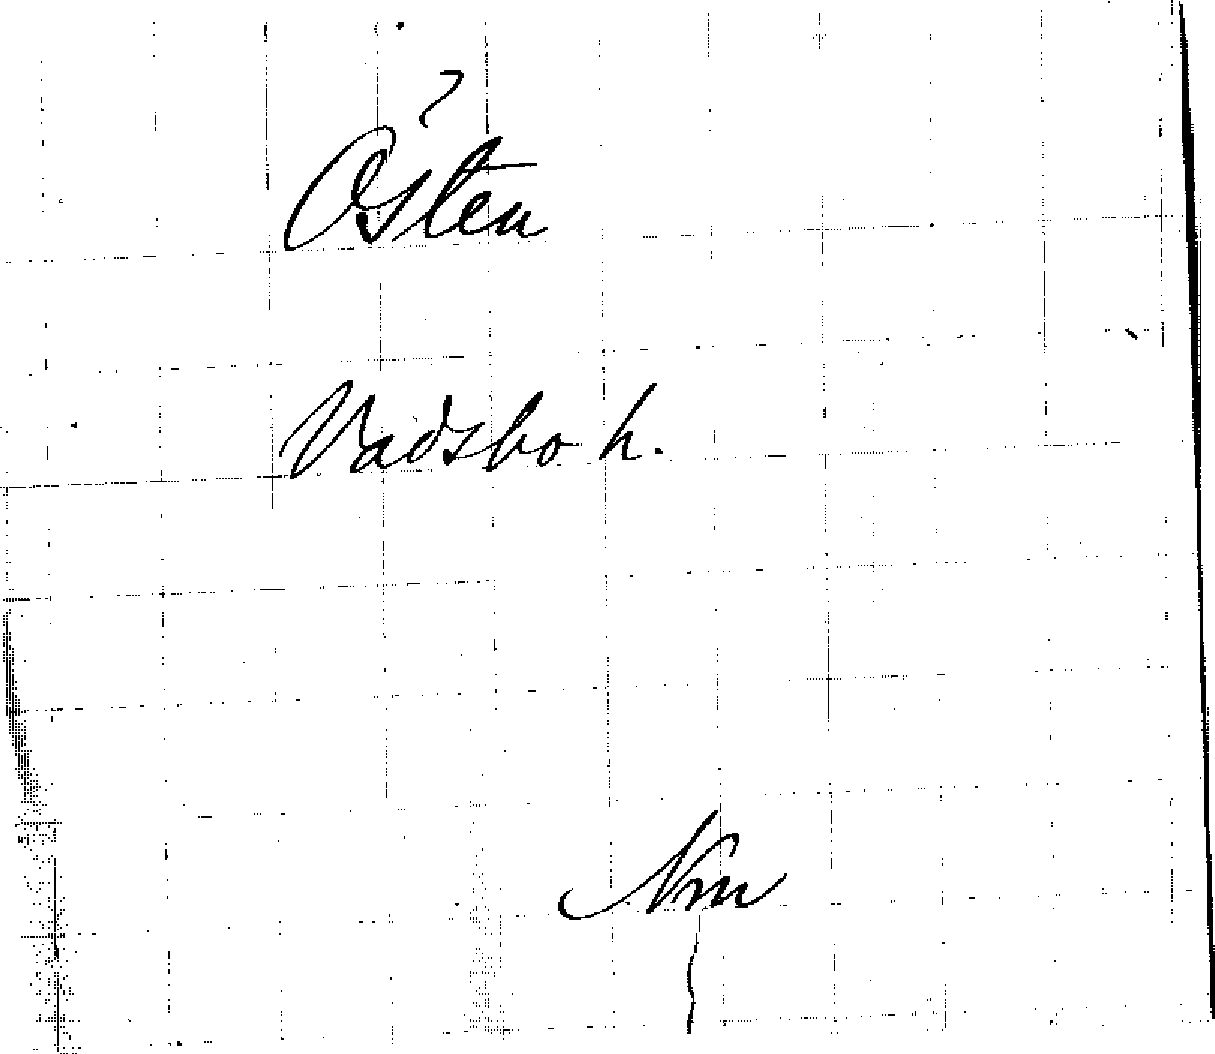 Östen
Vadsbo h.
Nm